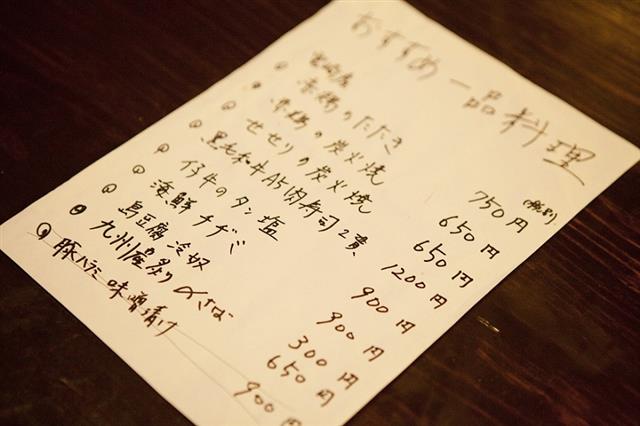 おすすめ一品料理
(税別)
宮崎産
赤鶏のたたき 750円
赤鶏の炭火焼 650円
せせりの炭火焼 650円
黒毛和牛A5肉寿司2貫 1200円
仔牛のタン塩 900円
海鮮チヂミ 900円
島豆腐冷奴 300円
九州産炙り〆さば 650円
豚ハラミ味噌漬け 900円